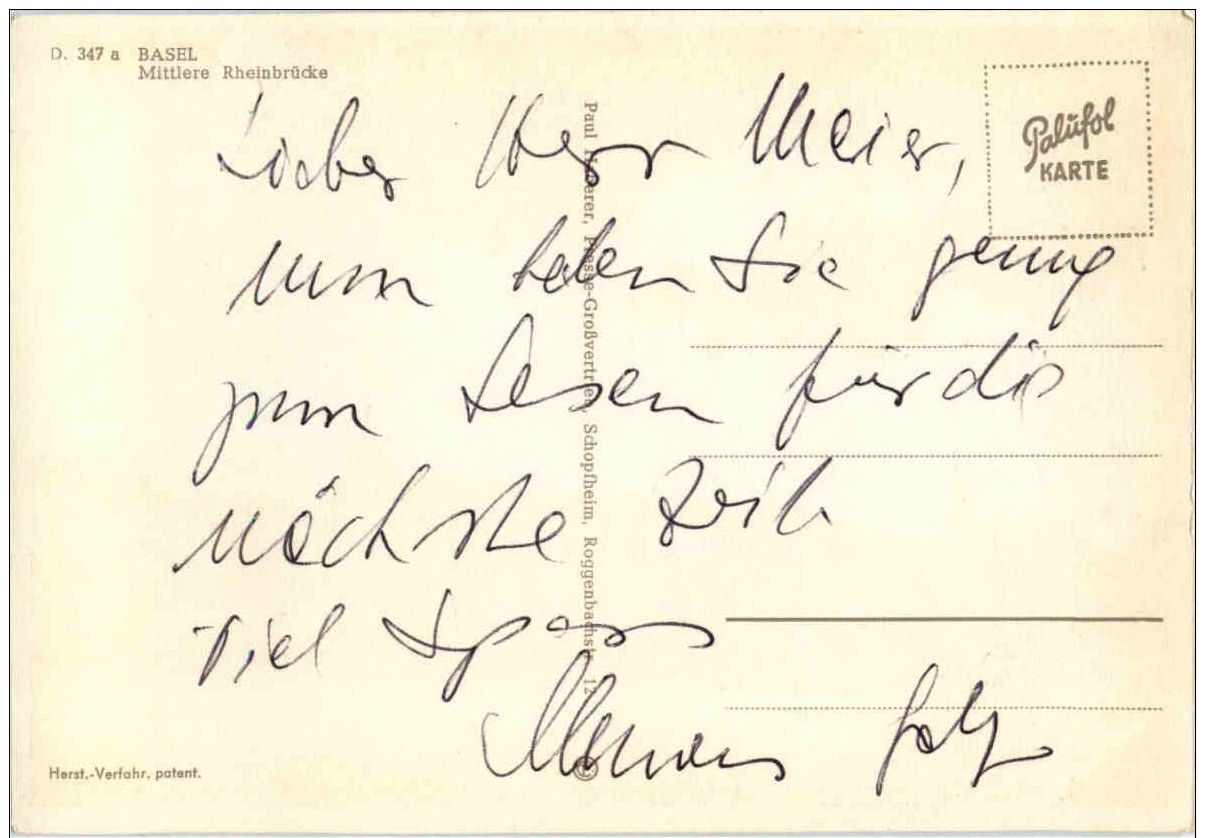 D. 347 a BASEL
Mittlere Rheinbrücke
Palüfol
KARTE
Lieber Herr Meier,
nun haben Sie genug
zum Lesen für die
nächste Zeit
Viel Spass
Paul Großvertrieb, Schopfheim, Roggenbachstr. 12
Herst.-Verfahr. patent.